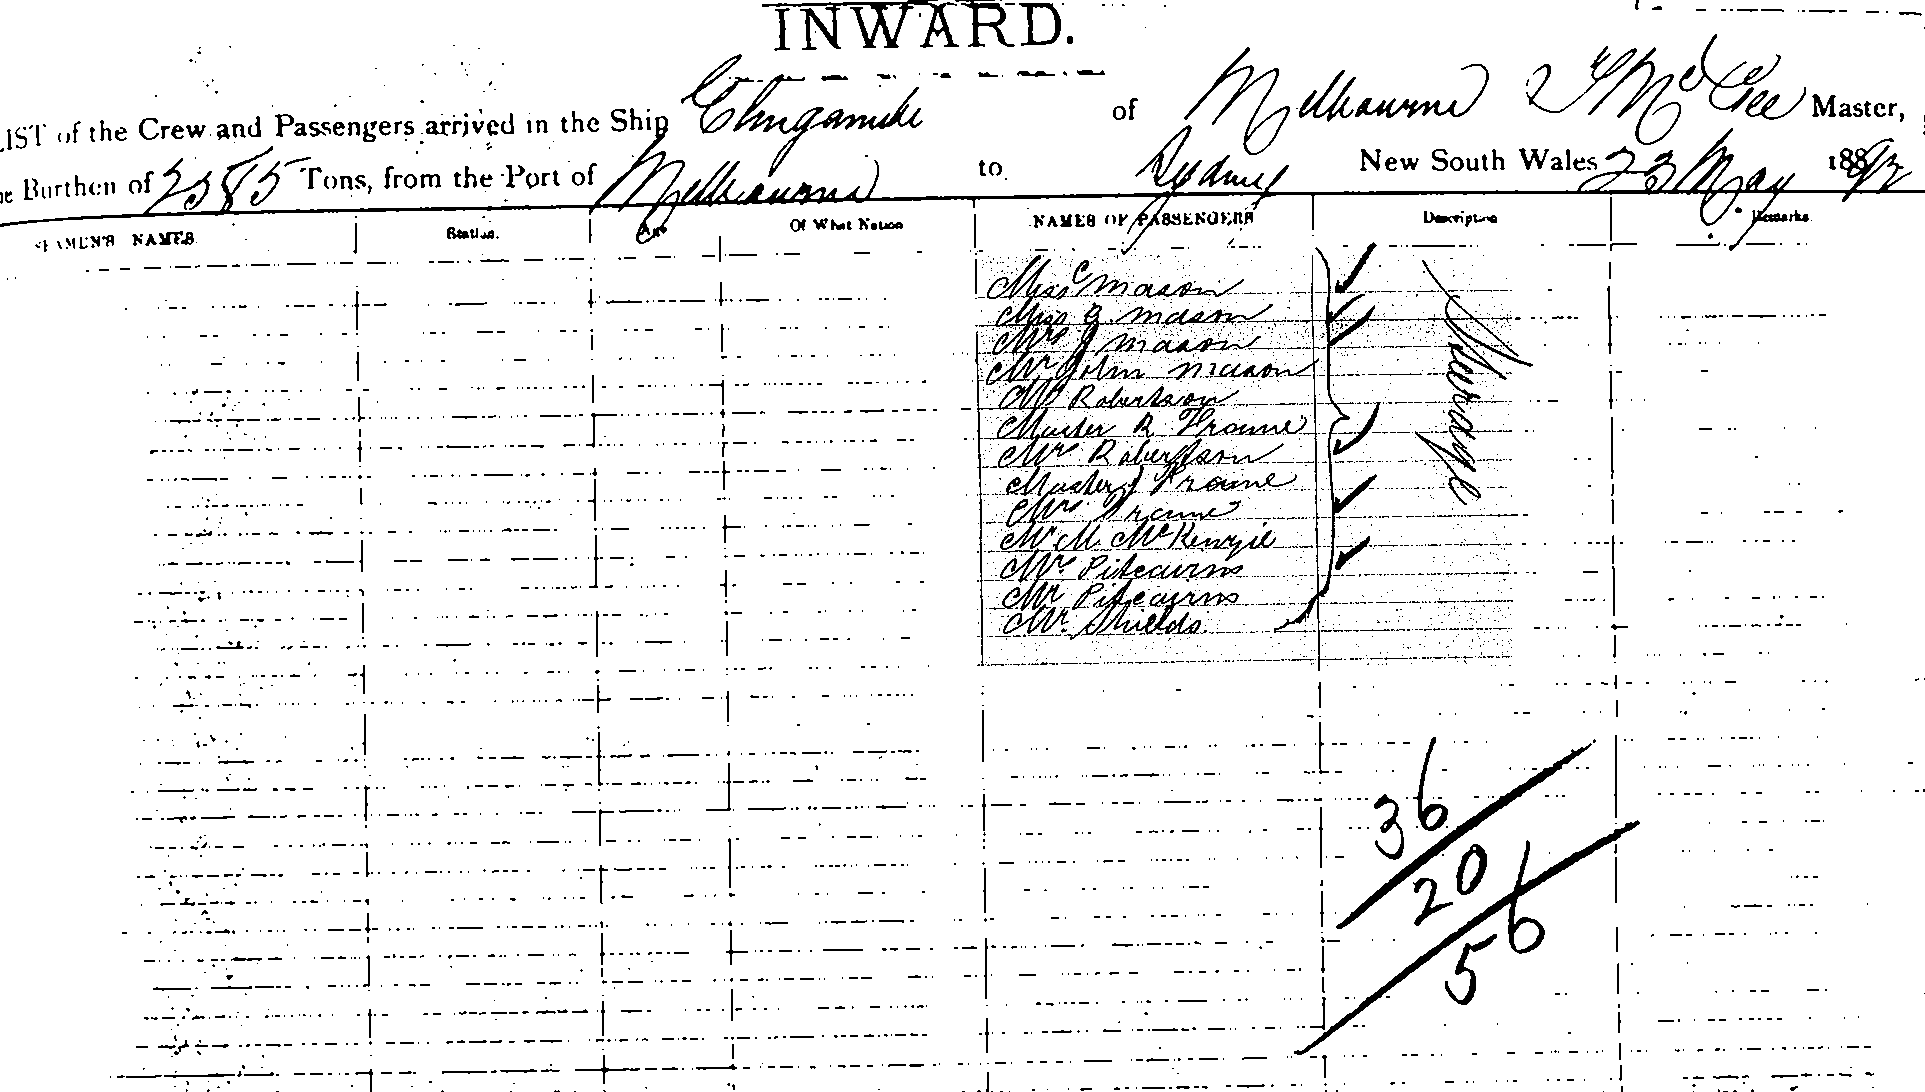 INWARD.
LIST of the Crew and Passengers arrived in the Ship Elingamite of Melbourne Master,
he Burthen of 2585 Tons, from the Port of Melbourne to Sydney New South Wales 23 May 1892
SEAMEN'S NAMES. Station. Age Of What Nation NAMES OF PASSENGERS Description Remarks
Miss C Mason
Miss G. Mason
Mrs J Mason
Mr John Mason
Mr Robertson
Master R Frame
Mrs Robertson
Master J Frame
Mrs Frame
Mr M. McKenzie
Mrs Pitcairns
Mr Pitcairns
Mr. Shields
Steerage
36
20
56